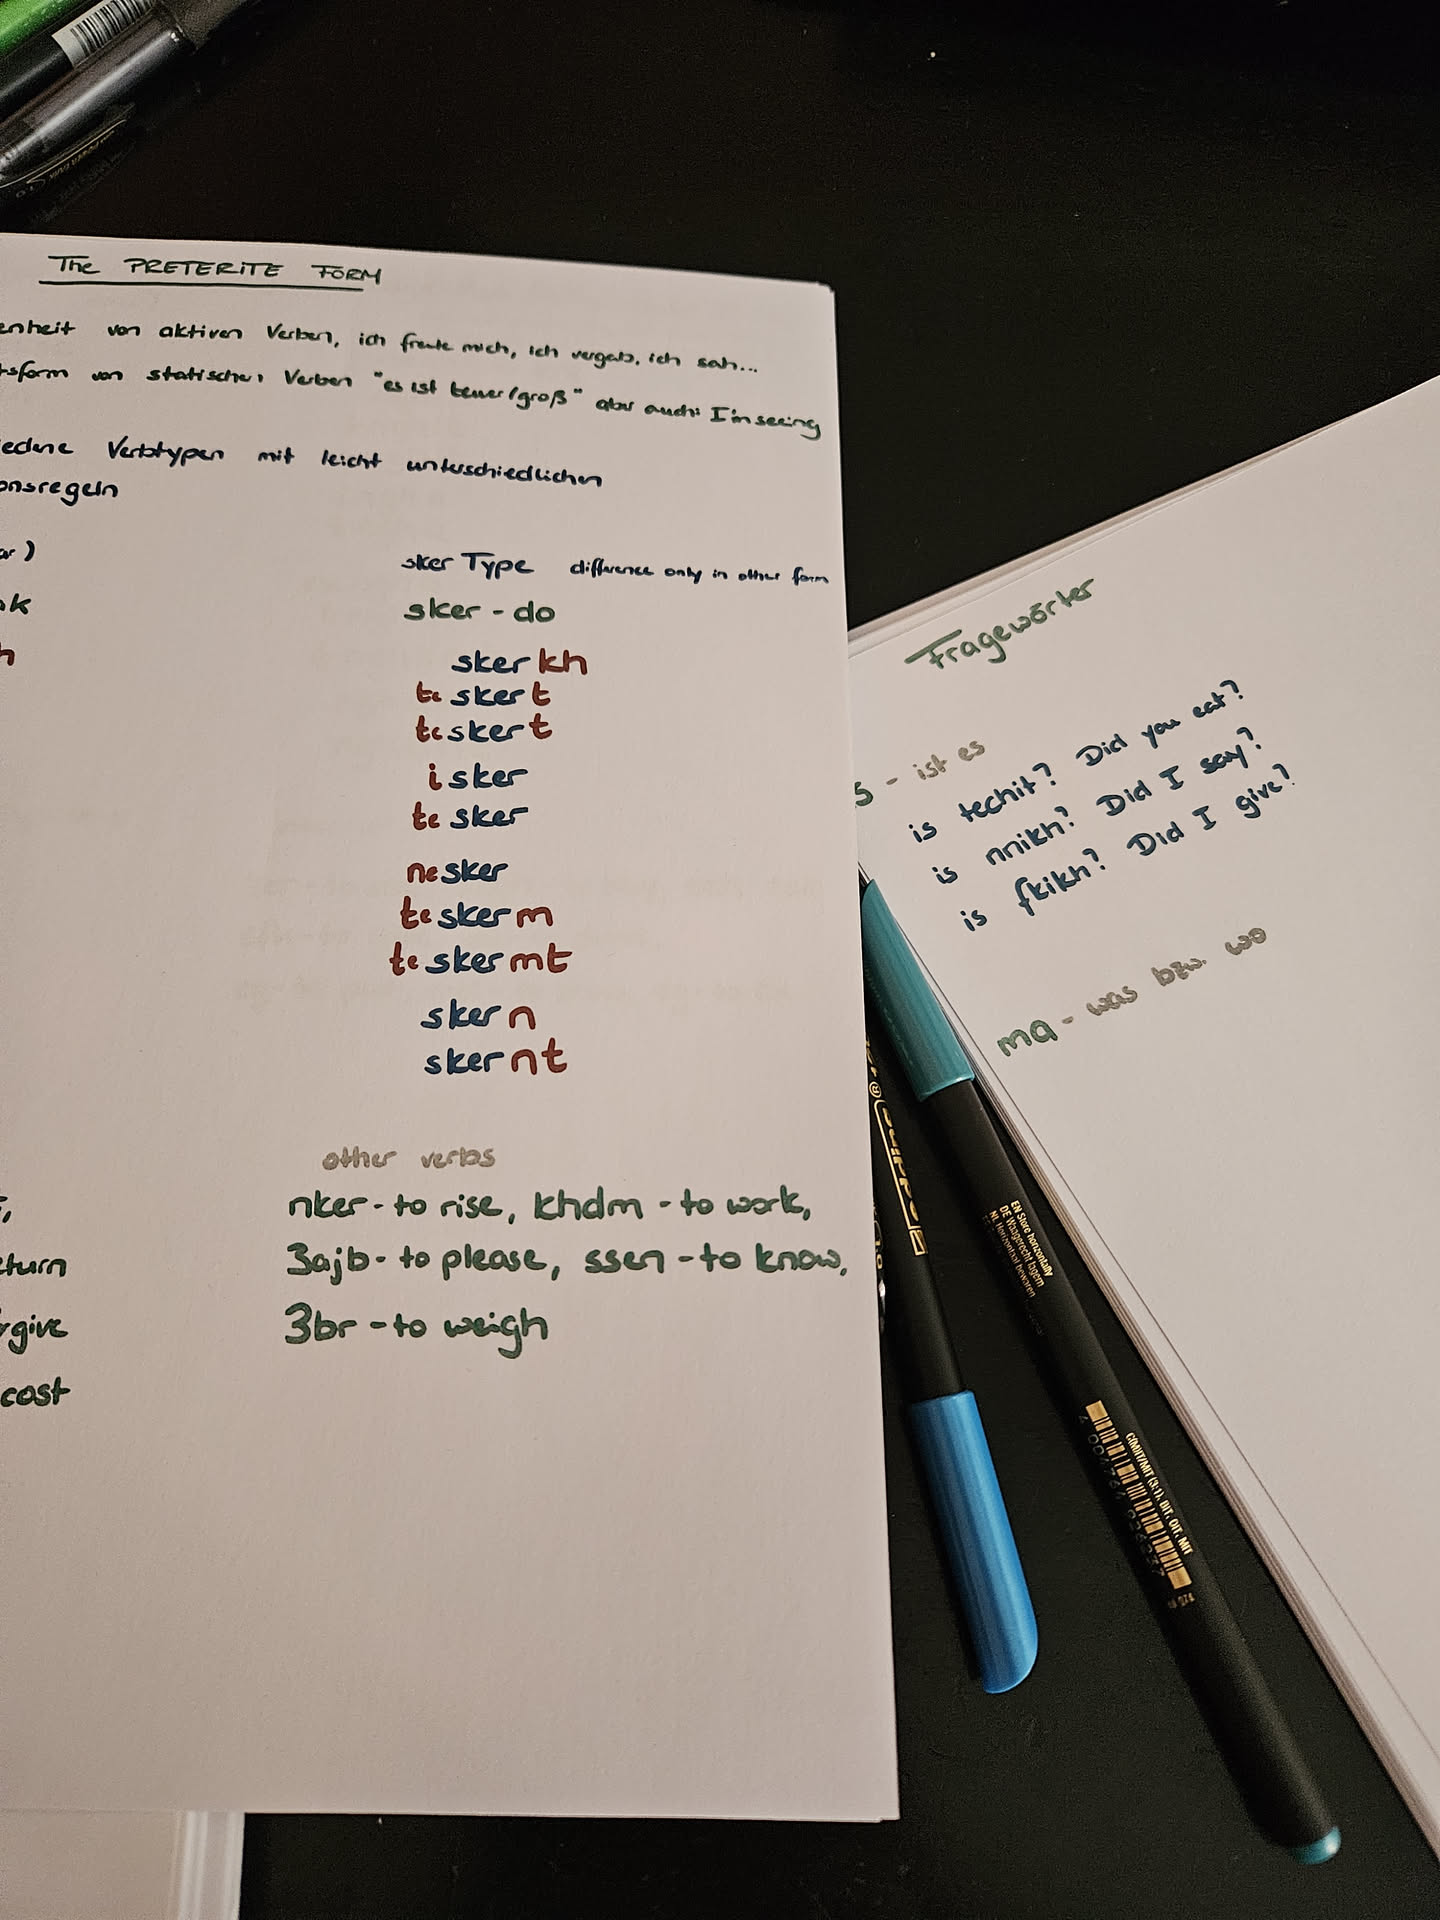 The PRETERITE FORM
enheit von aktiven Verben, ich freute mich, ich vergab, ich sah...
tsform von statischen Verben "es ist teuer/groß" aber auch: I'm seeing
iedene Verbtypen mit leicht unterschiedlichen
onsregeln
ar)
ok
h
turn
rgive
cost
sker Type difference only in other form
sker - do
sker kh
te sker t
te sker t
i sker
te sker
ne sker
te sker m
te sker mt
sker n
sker nt
other verbs
nker - to rise, khdm - to work,
3ajb - to please, ssen - to know,
3br - to weigh
Fragewörter
s - ist es
is techit? Did you eat?
is nnikh? Did I say?
is fkikh? Did I give?
ma - was bzw. wo
EN Store horizontally
DE Waagerecht lagern
NL Horizontaal bewaren